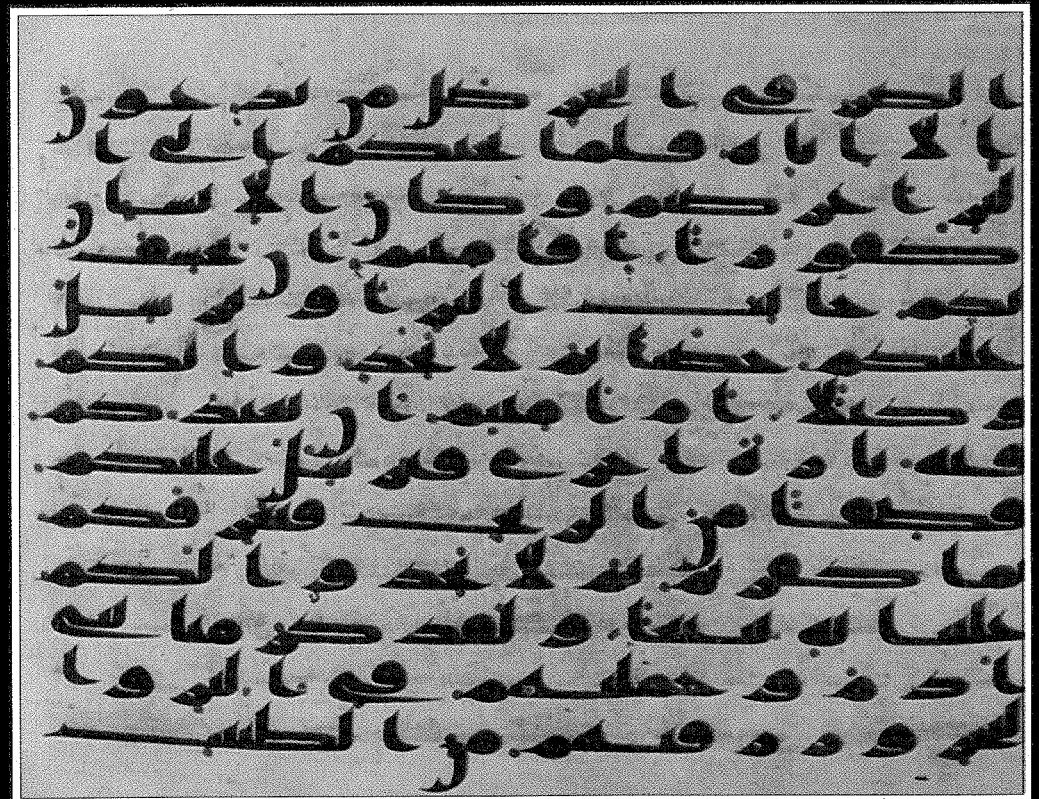 الضر في البحر ضل من تدعون
الا اياه فلما نجيكم الى ا
لبر اعرضتم وكان الانسان
كفورا افامنتم ان يخسف
بكم جانب البر او يرسل
عليكم حصبا ثم لا تجدوا لكم
وكيلا ام امنتم ان يعيدكم
فيه تارة اخرى فيرسل عليكم
قصفا من الريح فيغرقكم
بما كفرتم ثم لا تجدوا لكم
علينا به تبيعا ولقد كرمنا بني
ادم وحملنهم في البر وا
لبحر ورزقنهم من الطيب